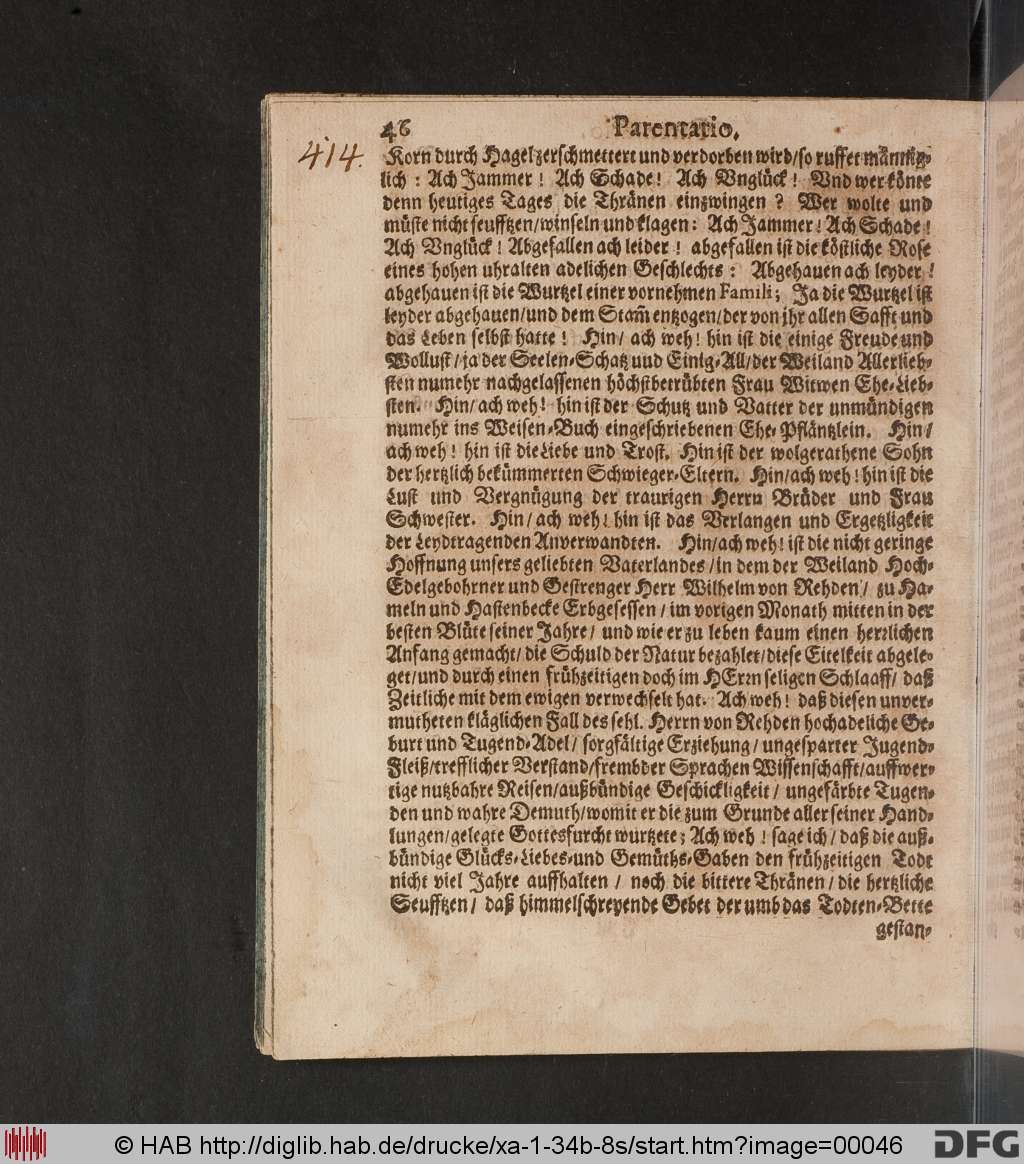 46 Parentatio.
414.
Korn durch Hagel zerschmettert und verdorben wird/so ruffet männig-
lich : Ach Jammer! Ach Schade! Ach Vnglück! Vnd wer könte
denn heutiges Tages die Thränen einzwingen ? Wer wolte und
müste nicht seufftzen/winseln und klagen: Ach Jammer! Ach Schade!
Ach Vnglück! Abgefallen ach leider! abgefallen ist die köstliche Rose
eines hohen uhralten adelichen Geschlechts: Abgehauen ach leyder!
abgehauen ist die Wurtzel einer vornehmen Famili; Ja die Wurtzel ist
leyder abgehauen/und dem Stam̃ entzogen/der von jhr allen Safft und
das Leben selbst hatte! Hin/ ach weh! hin ist die einige Freude und
Wollust/ja der Seelen-Schatz uud Einig-All/der Weiland Allerlieb-
sten numehr nachgelassenen höchstbetrübten Frau Witwen Ehe-Lieb-
sten. Hin/ ach weh! hin ist der Schutz und Vatter der unmündigen
numehr ins Weisen-Buch eingeschriebenen Ehe-Pfläntzlein. Hin/
ach weh! hin ist die Liebe und Trost. Hin ist der wolgerathene Sohn
der hertzlich bekümmerten Schwieger-Eltern. Hin/ach weh! hin ist die
Lust und Vergnügung der traurigen Herrn Brüder und Frau
Schwester. Hin/ ach weh! hin ist das Verlangen und Ergetzligkeit
der Leydtragenden Anverwandten. Hin/ach weh! ist die nicht geringe
Hoffnung unsers geliebten Vaterlandes/in dem der Weiland Hoch-
Edelgebohrner und Gestrenger Herr Wilhelm von Rehden/ zu Ha-
meln und Hastenbecke Erbgesessen/im vorigen Monath mitten in der
besten Blüte seiner Jahre/ und wie er zu leben kaum einen herrlichen
Anfang gemacht/ die Schuld der Natur bezahlet/diese Eitelkeit abgele-
get/und durch einen frühzeitigen doch im HErrn seligen Schlaaff/ daß
Zeitliche mit dem ewigen verwechselt hat. Ach weh! daß diesen unver-
mutheten kläglichen Fall des sehl. Herrn von Rehden hochadeliche Ge-
burt und Tugend-Adel/ sorgfältige Erziehung/ ungesparter Jugend-
Fleiß/trefflicher Verstand/frembder Sprachen Wissenschafft/auffwer-
tige nutzbahre Reisen/außbündige Geschickligkeit/ ungefärbte Tugen-
den und wahre Demuth/womit er die zum Grunde aller seiner Hand-
lungen/gelegte Gottesfurcht wurtzete; Ach weh! sage ich/ daß die auß-
bündige Glücks-Liebes-und Gemüths-Gaben den frühzeitigen Todt
nicht viel Jahre auffhalten / noch die bittere Thränen/ die hertzliche
Seufftzen/ daß himmelschreyende Gebet der umb das Todten-Bette
gestan-
© HAB http://diglib.hab.de/drucke/xa-1-34b-8s/start.htm?image=00046
DFG